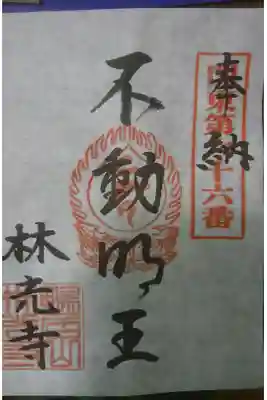 奉納
第十六番
不動明王
林光寺